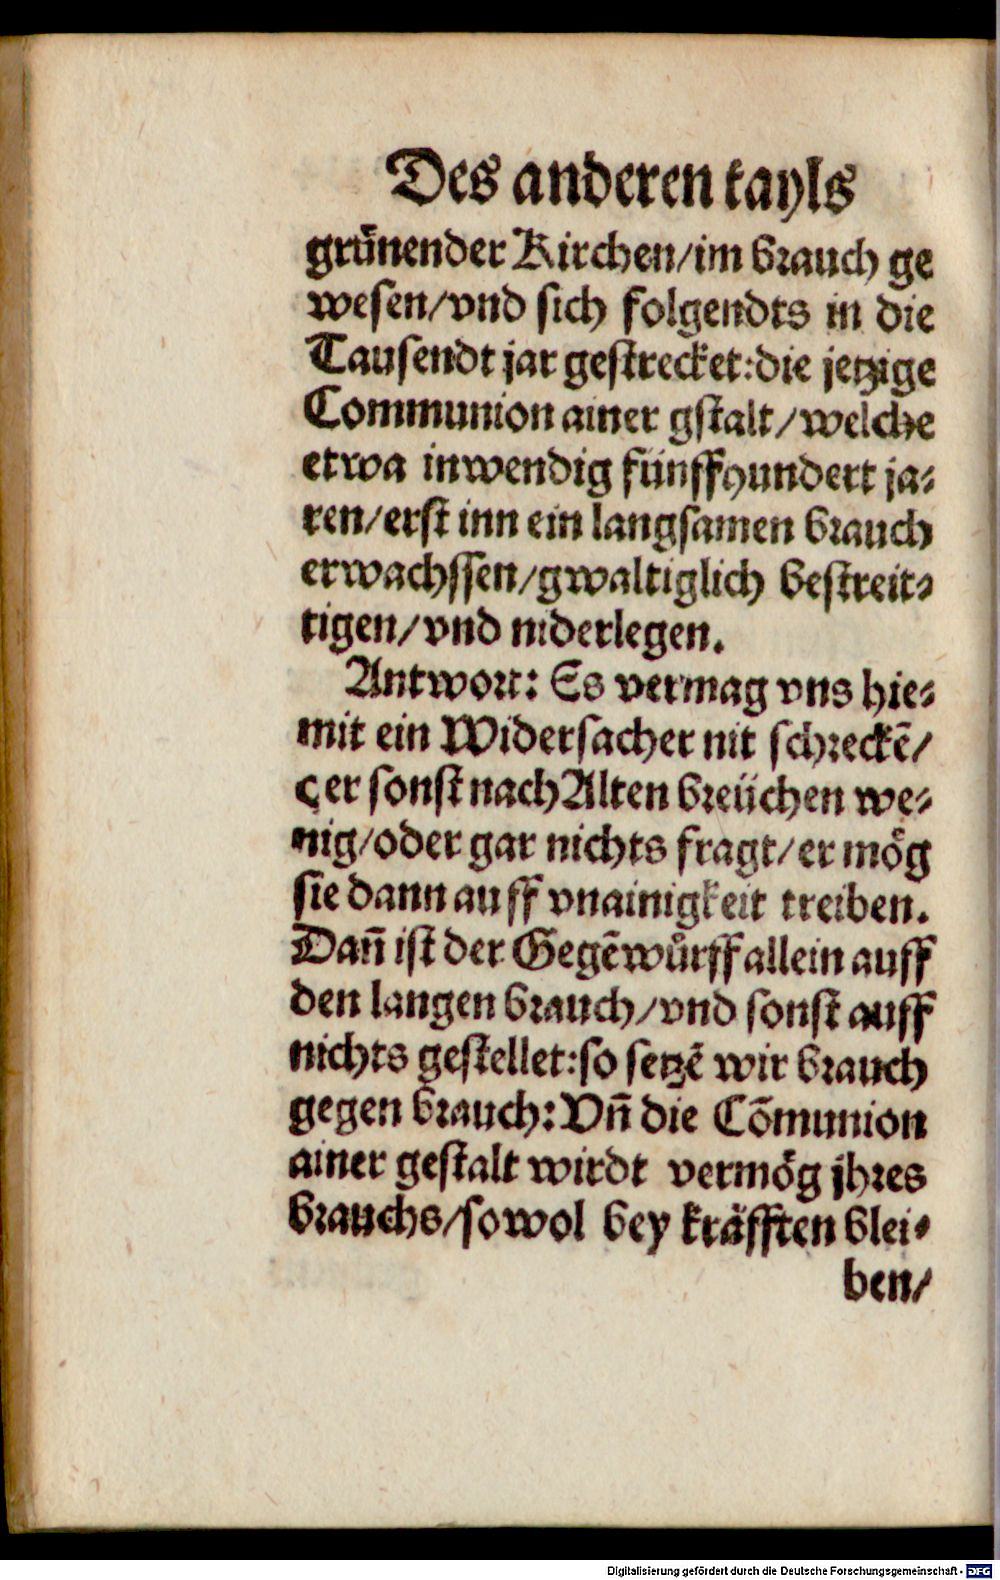 Des anderen tayls
grünender Kirchen/im brauch ge
wesen/vnd sich folgendts in die
Tausendt jar gestrecket:die jetzige
Communion ainer gstalt/welche
etwa inwendig fünffhundert ja⸗
ren/erst inn ein langsamen brauch
erwachssen/gwaltiglich bestreit⸗
tigen/vnd niderlegen.
Antwort: Es vermag vns hie⸗
mit ein Widersacher nit schreckē/
der sonst nach Alten breüchen we⸗
nig/oder gar nichts fragt/er mög
sie dann auff vnainigkeit treiben.
Dañ ist der Gegēwůrff allein auff
den langen brauch/vnd sonst auff
nichts gestellet:so setzē wir brauch
gegen brauch:Vñ die Cōmunion
ainer gestalt wirdt vermög jhres
brauchs/sowol bey kräfften blei⸗
ben/
Digitalisierung gefördert durch die Deutsche Forschungsgemeinschaft - DFG